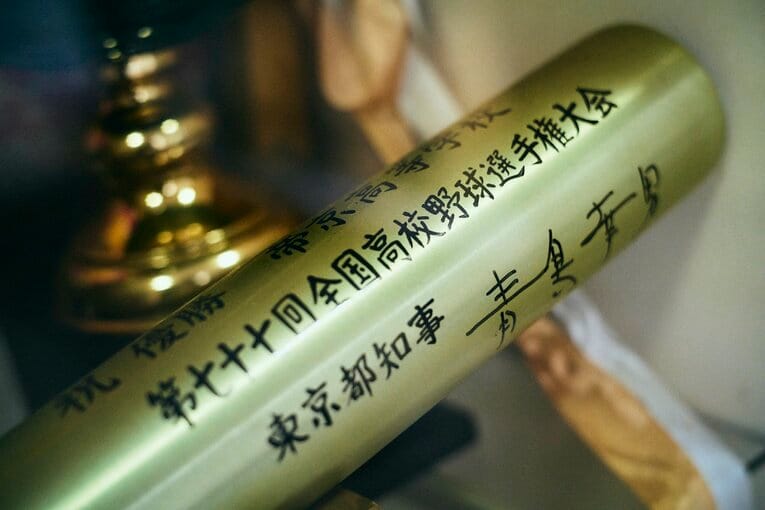 祝 優勝 帝京高等学校
第七十七回全国高校野球選手権大会
東京都知事 青島幸男